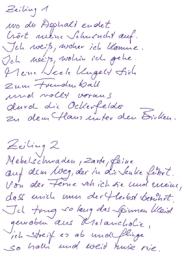 Zeiling 1
wo der Asphalt endet
hört meine Sehnsucht auf.
Ich weiß, woher ich komme.
Ich weiß, wohin ich gehe
Meine Seele kugelt sich
zum Freudenball
und rollt voraus
durch die Ackerfelder
zu dem Haus unter den Birken.
Zeiling 2
Nebelschwaden, zarte, feine
auf dem Weg, der in die Senke führt.
Von der Ferne seh ich die und meine,
dass mich nun der Herbst berührt.
Ich trug so lang das Kleid
gewoben aus Melancholie,
ich streif es ab und fliege
so nah und weit wie nie.